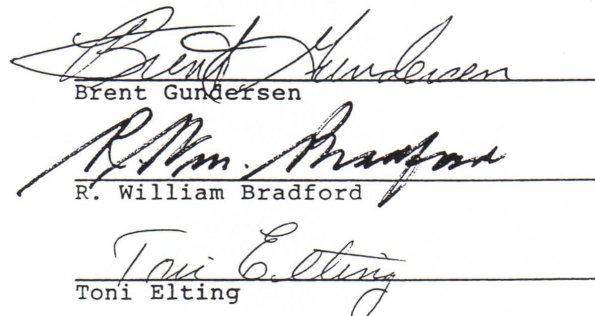 Brent Gundersen
Brent Gundersen
R. Wm. Bradford
R. William Bradford
Toni Elting
Toni Elting